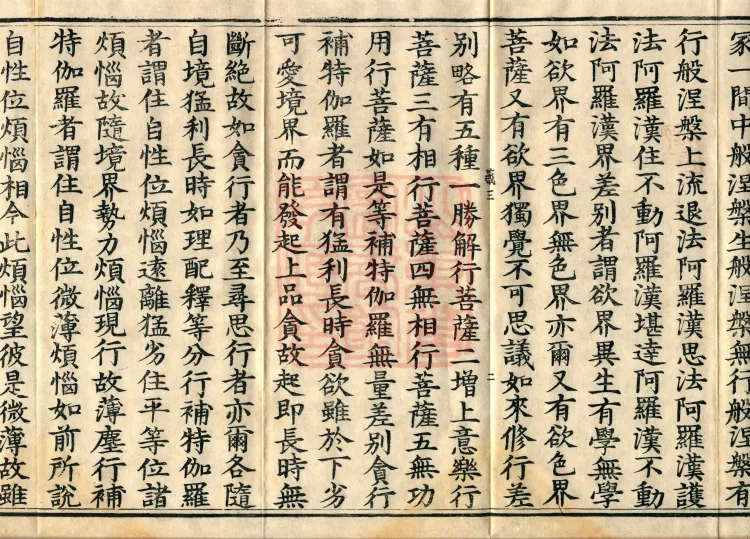 家一間中般涅槃生般涅槃無行般涅槃有
行般涅槃上流退法阿羅漢思法阿羅漢護
法阿羅漢住不動阿羅漢堪達阿羅漢不動
法阿羅漢界差別者謂欲界異生有學無學
如欲界有三色界無色界亦爾又有欲色界
菩薩又有欲界獨覺不可思議如來修行差
別略有五種一勝解行菩薩二增上意樂行
菩薩三有相行菩薩四無相行菩薩五無功
用行菩薩如是等補特伽羅無量差別貪行
補特伽羅者謂有猛利長時貪欲雖於下劣
可愛境界而能發起上品貪故起即長時無
斷絕故如貪行者乃至尋思行者亦爾各隨
自境猛利長時如理配釋等分行補特伽羅
者謂住自性位煩惱遠離猛劣住平等位諸
煩惱故隨境界勢力煩惱現行故薄塵行補
特伽羅者謂住自性位微薄煩惱如前所說
自性位煩惱相今此煩惱望彼是微薄故雖